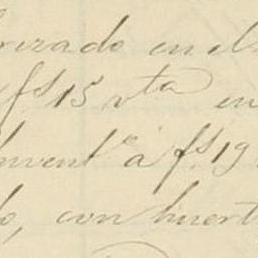 orizado en el
fs 15 vta en
Invent.º á fs 19
do, con huert